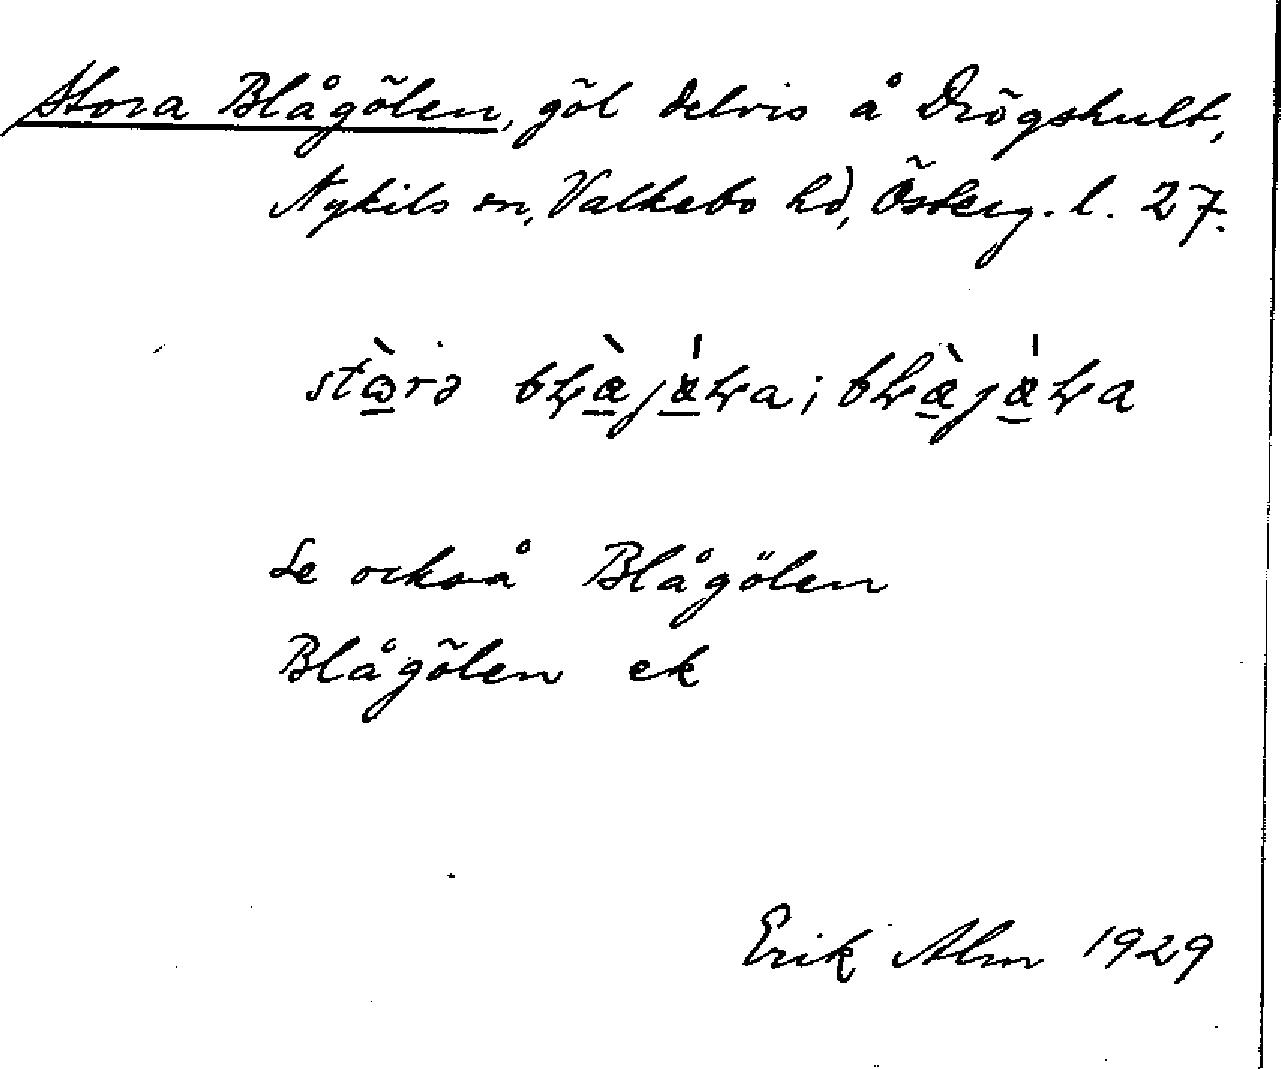 Stora Blågölen, göl delvis å Drögshult,
Nykils sn, Valkebo hd, Österg. l. 27.
Se också Blågölen
Blågölen ek
Erik Alm 1929